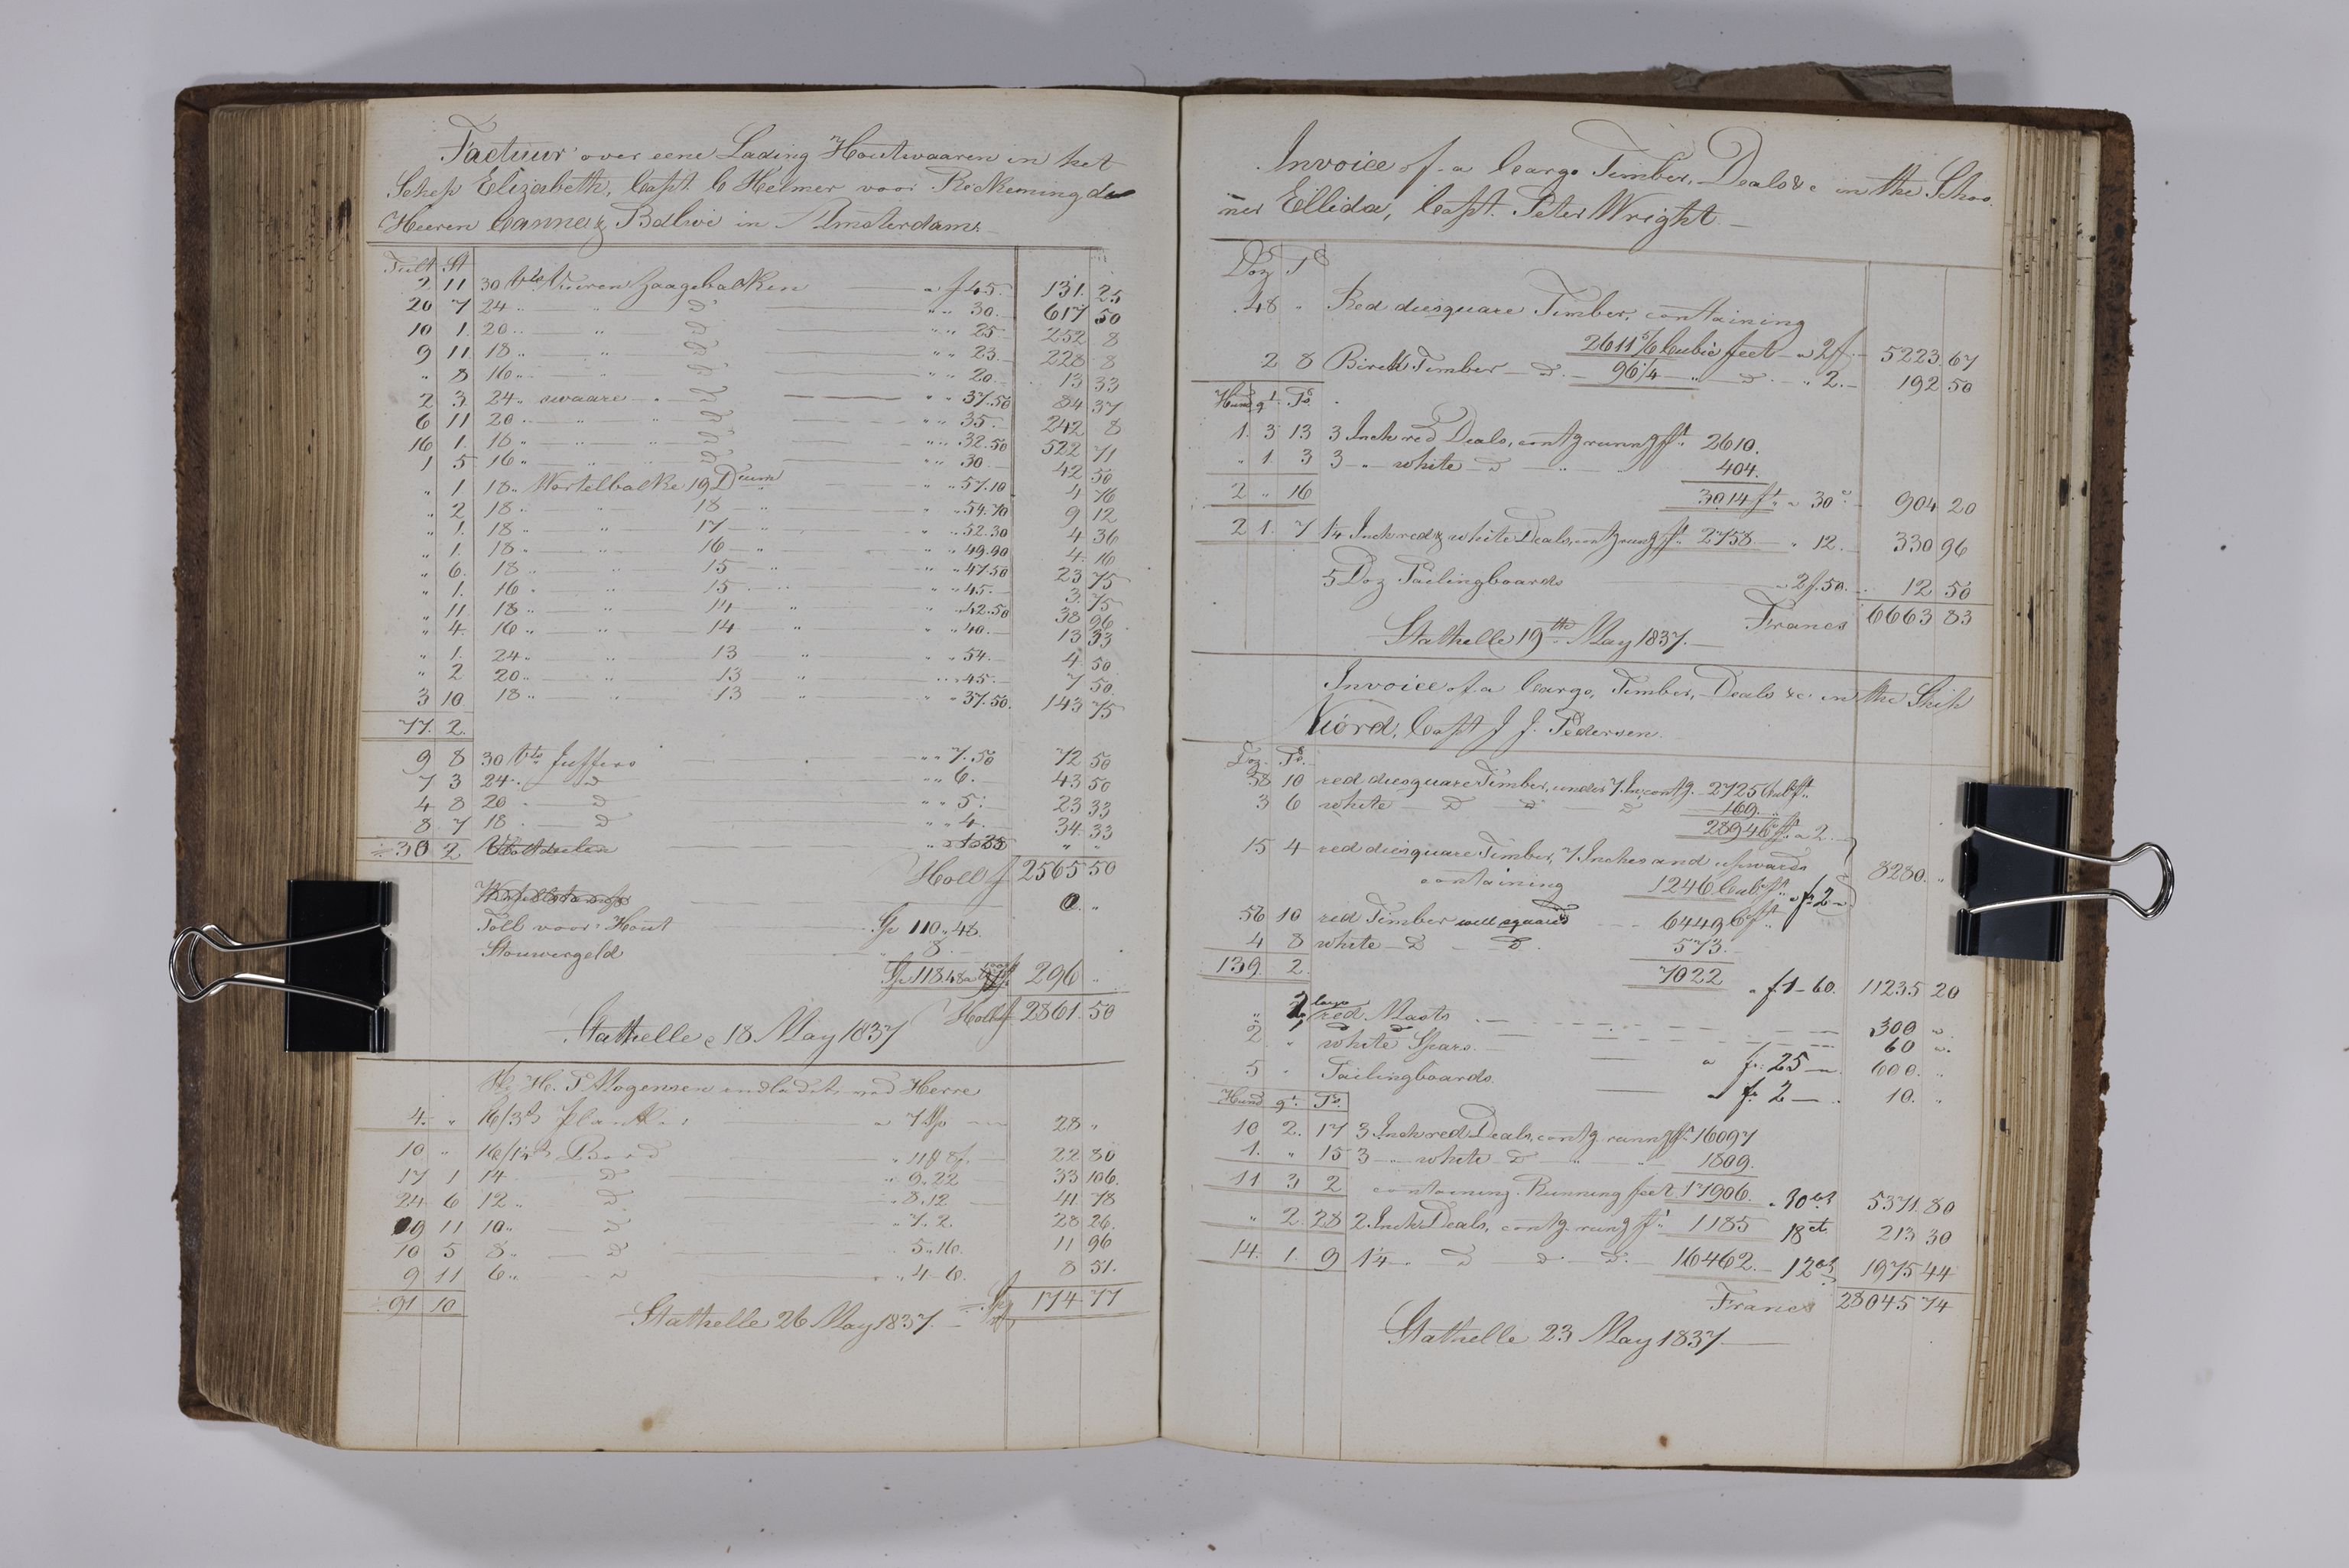 Factuur over eene Lading Houtwaaren in het
Schip Elizabeth, Capt. C Helmer voor Reckening de
Heeren Canne & Balwe in Amsterdam.
Tult St
2 11 30 vts Vuuren Zaagebalken a f 45. 131. 25
20 7 24 " " D " " 30. 617 50
10 1. 20 " " D " " 25 252 8
9 11 18 " " D " " 23. 228 8
" 8 16 " " D " " 20. 13 33
2 3 24 " swaare " D " " 37.50 84 37
6 11 20 " " " D " " 35. 242 8
16 1. 18 " " " D " " 32.50 522 71
1 5 16 " " " D " " 30 42 50
" 1 18 " Wortelbalke 19 Duim " " 57.10 4 76
" 2 18 " " 18 " " " 54.70 9 12
" 1. 18 " " 17 " " " 52.30 4 36
" 1. 18 " " 16 " " " 49.90 4. 16
" 6. 18 " " 15 " " " 47.50 23 75
" 1. 16 " " 15 " " " 45. 3. 75
" 11 18 " " 14 " " " 42.50 38 96
" 4. 16 " " 14 " " " 40. 13 33
" 1. 24 " " 13 " " " 54. 4 50
" 2 20 " " 13 " " " 45. 7 50
3 10 18 " " 13 " " " 37.50. 143 75
77. 2.
9 8 30 vts Juffers " " 7.50 72 50
7 3 24 " D " " 6. 43 50
4 8 20 " D " " 5. 23 33
8 7 18 " D " " 4. 34. 33
30 2 " "
Holl f 2565 50
0. "
Toll voor Hout Sp 110 " 48.
Stouwergeld " 8
Sp 118.48 296 "
Stathelle 18 May 1837 Holl f 2861. 50
H. T Mogensen indladet ved Herre
4. " 16/3 Plank a 7 Sp 28 "
10 " 16/ Bord " 22 80
17 1 14 D " 9. 22 33 106.
24 6 12 " D. " 8.12 41 78
9 11 10 " D " 7. 2. 28 26.
10 5 8 " D 5 " 16. 11 96
9 11 6 " D " 4 - 6. 8 51.
91 10 Stathelle 26 May 1837. 174 77
Invoice of a Cargo Timber, Deals &c in the Schoo
ner Ellida, Capt. Peter Wright
Doz Ps
48 " Red diesquare Timber, containing
2611 5/6 Cubic feet a 2 f. 5223 67
2 8 Birch Timber D. 96 1/4 " D. " 2. 192 50
Hund qt. Ps.
1. 3 13 3 Inch red Deals, contg runng ft. 2610.
" 1. 3 3 " white D " 404.
2 " 16 3014 ft a 30 c 904 20
2 1. 7 1 1/4 Inch red & white Deals, contg rung ft. 2758 " 12. 330 96
5 Doz Tailingboards a 2 f. 50. 12 50
Francs 6663 83
Stathelle 19th May 1837.
Invoice of a Cargo, Timber, Deals &c in the Ship
Niord, Capt J J. Pedersen.
Doz. Ps.
58 10 red diesquare Timber, under 7 In: contg. 2725 Cub ft.
3 6 white D D D 169. "
2894 Cft a 2.
15 4 red diesquare Timber, 7 Inches and upwards
containing 1246 Cub. ft. a f 2 8280. "
56 10 red Timber well squared 6449 Cft.
4 8 white D D. 573.
139. 2. 7022 a f. 1-60. 11235 20
" 2 large red Masts 300 "
" 1 D D 60 "
2 " white Spars a f. 25 600. "
5 " Tailingboards. a f. 2 10. "
Hund qt. Ps.
10 2. 17 3 Inch red Deals, contg. runng ft. 16097
1. " 15 3 " white D " " 1809.
11 3 2 containing Running feet 17906. a 30 cts 5371. 80
" 2. 28 2 Inch Deals, contg rung ft. 1185 18 ct. 213 30
14. 1. 9 1 1/4 D D D. 16462. 12 cts 1975 44
Francs 28045 74
Stathelle 23 May 1837